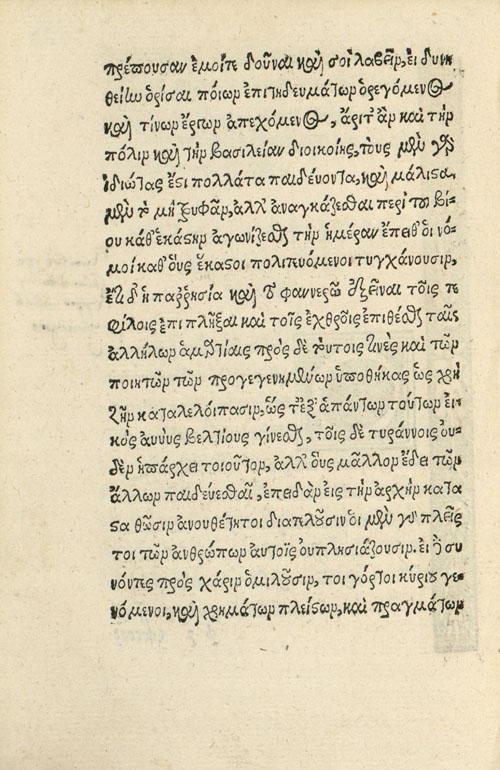 πρέπουσαν ἐμοί τε δοῦναι καὶ σοὶ λαβεῖν, εἰ δυνη
θείην ὁρίσαι ποίων ἐπιτηδευμάτων ὀρεγόμενος
καὶ τίνων ἔργων ἀπεχόμενος, ἄριστ' ἂν καὶ τὴν
πόλιν καὶ τὴν βασιλείαν διοικοίης, τοὺς μὲν γὰρ
ἰδιώτας ἐστι πολλά τα παιδεύοντα, καὶ μάλιστα
μὲν τὸ μὴ τρυφᾶν, ἀλλ' ἀναγκάζεσθαι περὶ τοῦ βί
ου καθ' ἑκάστην ἀγωνίζεσθαι τὴν ἡμέραν ἔπειθ' οἱ νό
μοι καθ' οὓς ἕκαστοι πολιτευόμενοι τυγχάνουσιν,
ἔτι δ' ἡ παρρησία καὶ τὸ φανερῶς ἐξεῖναι τοῖς τε
φίλοις ἐπιπλῆξαι καὶ τοῖς ἐχθροῖς ἐπιθέσθαι ταῖς
ἀλλήλων ἁμαρτίαις πρὸς δὲ τούτοις τινὲς καὶ τῶν
ποιητῶν τῶν προγεγενημένων ὑποθήκας ὡς χρὴ
ζῆν καταλελοίπασιν, ὥστ' ἐξ ἁπάντων τούτων εἰ
κὸς αὐτοὺς βελτίους γίνεσθαι, τοῖς δὲ τυράννοις οὐ
δὲν ὑπάρχει τοιοῦτον, ἀλλ' οὓς μᾶλλον ἔδει τῶν
ἄλλων παιδεύεσθαι, ἐπειδὰν εἰς τὴν ἀρχὴν κατα
σταθῶσιν ἀνουθέτητοι διατελοῦσιν οἱ μὲν γὰρ πλεῖς
τοι τῶν ἀνθρώπων αὐτοῖς οὐ πλησιάζουσιν. οἱ δὲ συ
νόντες πρὸς χάριν ὁμιλοῦσιν, τοι γάρτοι κύριοι γε
νόμενοι, καὶ χρημάτων πλείστων, καὶ πραγμάτων